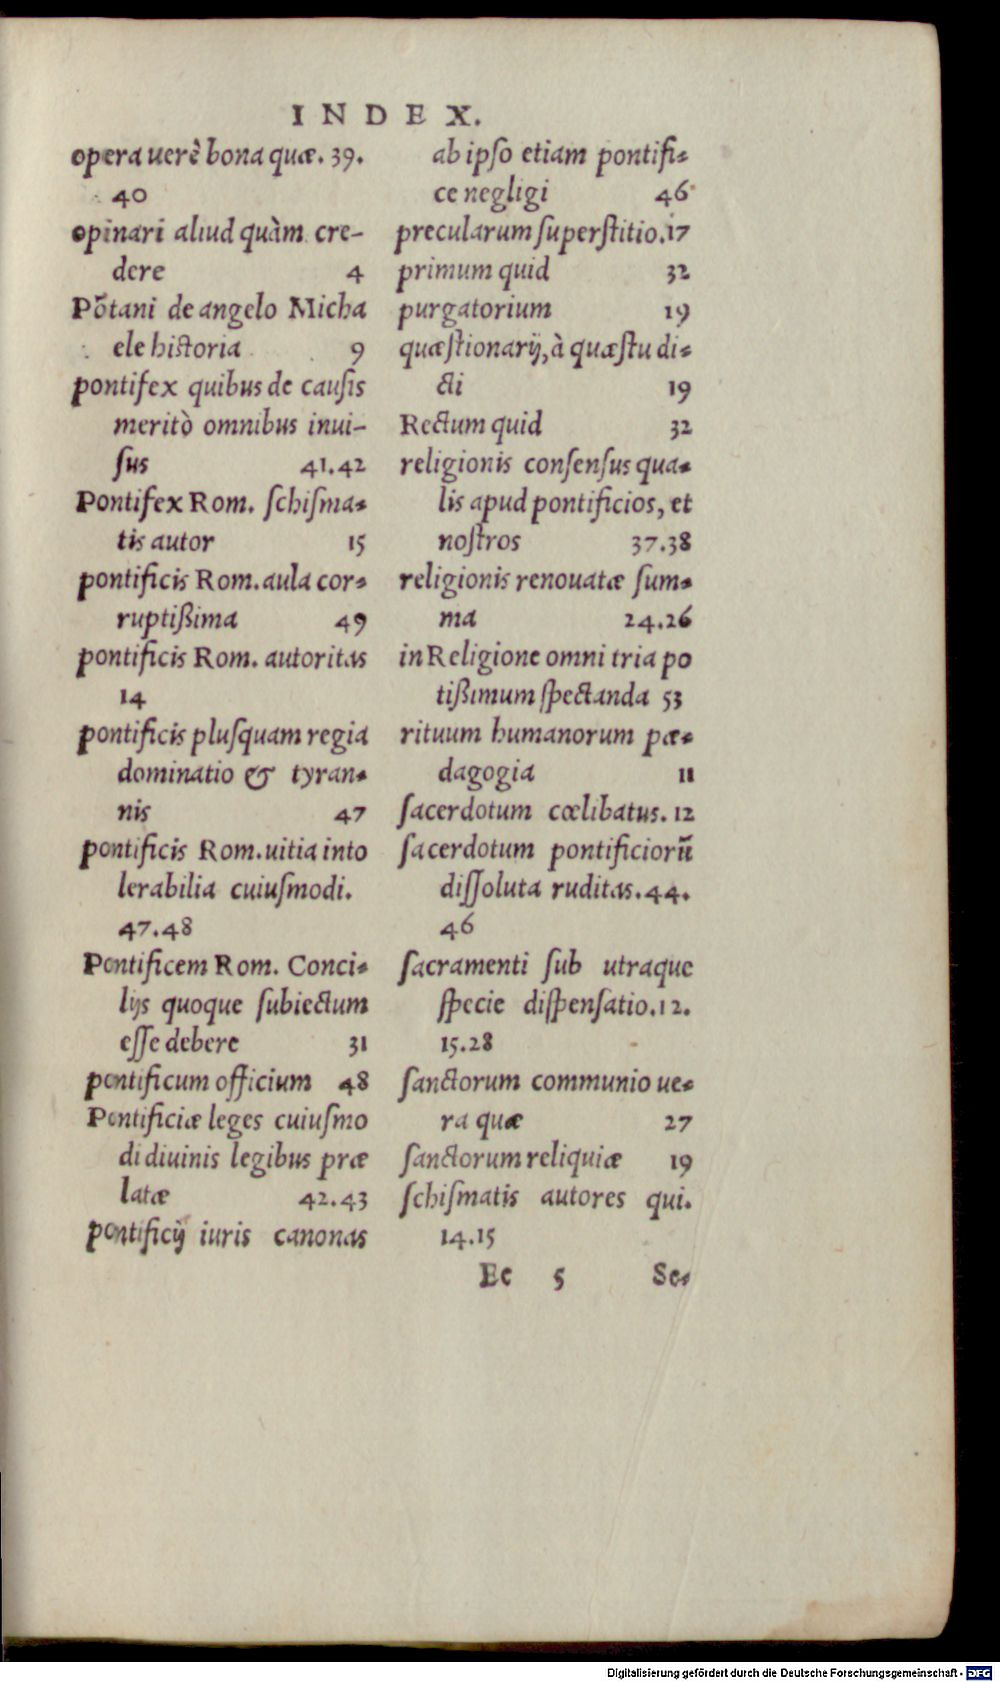 INDEX.
opera uerè bona quæ. 39.
40
opinari aliud quàm cre-
dere 4
Põtani de angelo Micha
ele historia 9
pontifex quibus de causis
meritò omnibus inui-
ſus 41.42
Pontifex Rom. ſchiſma-
tis autor 15
pontificis Rom. aula cor-
ruptißima 49
pontificis Rom. autoritas
14
pontificis pluſquam regia
dominatio & tyran-
nis 47
pontificis Rom. uitia into
lerabilia cuiuſmodi.
47.48
Pontificem Rom. Conci-
lijs quoque ſubiectum
eſſe debere 31
pontificum officium 48
Pontificiæ leges cuiuſmo
di diuinis legibus præ
latæ 42.43
pontificij iuris canonas
ab ipſo etiam pontifi-
ce negligi 46
precularum ſuperſtitio. 17
primum quid 32
purgatorium 19
quæſtionarij, à quæſtu di-
cti 19
Rectum quid 32
religionis conſenſus qua-
lis apud pontificios, et
noſtros 37.38
religionis renouatæ ſum-
ma 24.26
in Religione omni tria po
tißimum ſpectanda 53
rituum humanorum pæ-
dagogia 11
ſacerdotum cœlibatus. 12
ſacerdotum pontificiorũ
diſſoluta ruditas. 44.
46
ſacramenti ſub utraque
ſpecie diſpenſatio. 12.
15.28
ſanctorum communio ue-
ra quæ 27
ſanctorum reliquiæ 19
ſchiſmatis autores qui.
14.15
Ee 5 Se-
Digitalisierung gefördert durch die Deutsche Forschungsgemeinschaft - DFG